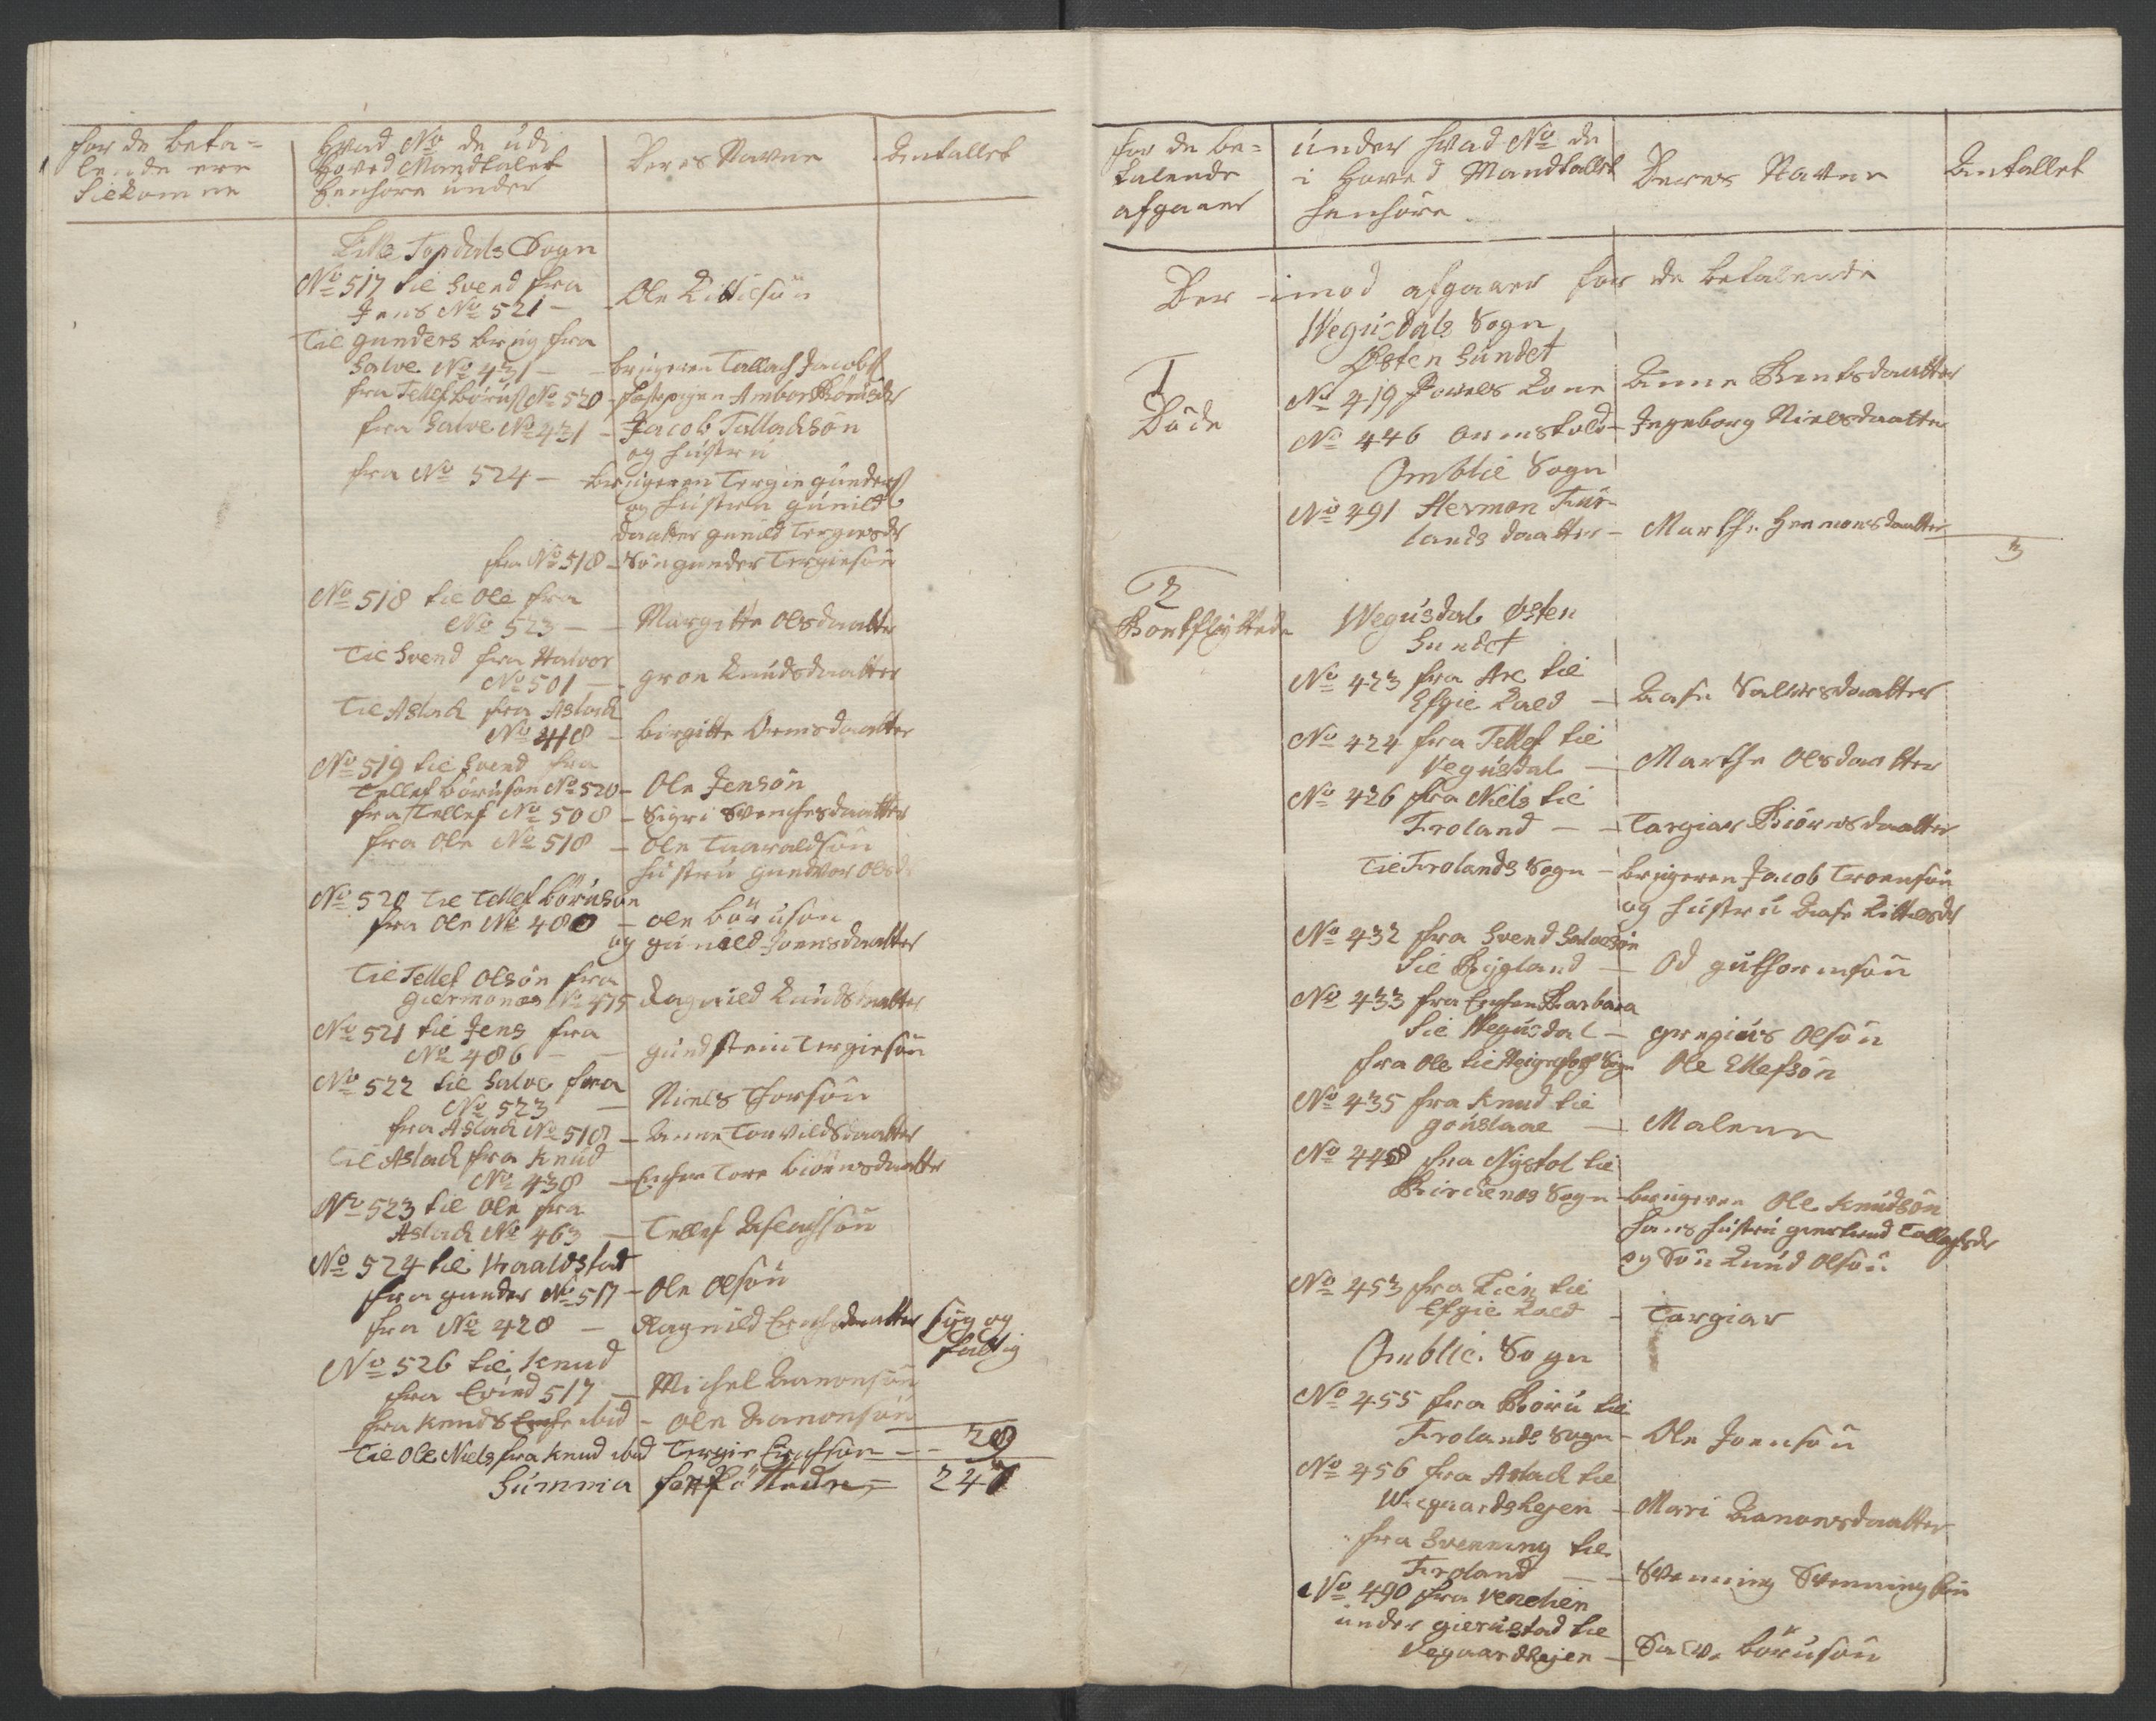 for de beta=
lende ere
tilkomne
Hvad No de udi
Hoved Mandtalet
henhøre under
Deres Navne
Antallet
Lille Topdals Sogn
No 517 til Svend fra
Jens No 521 - Ole Kittilsøn
Til gunders brug fra
Salve No 431 - brugeren Tallach Jacobs
fra Tellef Børuss No 520 - Festepigen Ambor
fra Salve No 431 - Jacob Talladsøn
og hustru
fra No 524 - brugeren Tergie gunders
og hustru gunild
daatter gunild Tergiesdr
fra No 518 - Søn gunder Tergiesøn
No 518 til Ole fra
No 523 - Margitte Olsdaatter
Til Svend fra Halvor
No 501 - groe Knudsdaatter
Til Aslack fra Aslack
No 418 - birgitte Ormsdaatter
No 519 til Svend fra
Tellef børuson No 520 - Ole Jensøn
fra Tellef No 508 - Sigri Svenchesdaatter
fra Ole No 518 - Ole Taaraldsøn
hustru gundvor Olsd
No 520 Til Tellef börusøn
fra Ole No 480 - Ole böruson
og gunild Joensdaatter
Til Tellef Olsøn fra
giermones No 475 Ragnild Knudsdaatter
No 521 til Jens fra
No 486 - gundstein Tergiesøn
No 522 til Salve fra
No 523 - Niels Thorsøn
fra Aslack No 518 - Anne Torvildsdaatter
Til Aslack fra Knud
No 438 - Enchen Tore biørnsdaatter
No 523 til Ole fra
Aslack No 463 - Tellef Aslachsøn
No 524 til Haaldstad
fra gunder No 517 - Ole Olsøn
fra No 428 - Ragnild Erichsdaatter Syg og
fattig
No 526 til Knud
fra Evind 517 - Michel Aanonsøn
fra Knuds Enche ibid - Ole Aanonsøn
Til Ole Niels fra Knud ibid Tergie Erichsøn - - 28
Summa = 247
for de be=
talende
afgaaer
under hvad No de
i Hoved Mandtallet
henhøre
Deres Navne
Antallet
Der imod afgaaer for de betalende
Wegusdals Sogn
Østen Sundet
1
Døde
No 419 Powels Kone Anne Bentsdaatter
No 446 Ormskold - Ingeborg Nielsdaatter
Omblie Sogn
No 491 Hermon Fur-
lands daatter - Marthe Hermonsdaatter
3
2
Bortflyttede
Wegusdal Østen
Sundet
No 423 fra Are til
Efgie Kald - Aase Salvesdaatter
No 424 fra Tellef til
Vegusdal - Marthe Olsdaatter
No 426 fra Niels til
Froland - - Torgiær Biørnsdaatter
Til Frolands Sogn - brugeren Jacob Troensøn
og hustru Aase Kittelsdr
No 432 fra Svend Salvesøn
til Rygland - Od guthormsøn
No 433 fra Enchen Barbara
til Wegusdal - gregius Olsøn
fra Ole til Sogn Ole Ellefsøn
No 435 fra Knud til
gouslaae - Malene
No 448 fra Nystol til
Birchenes Sogn - brugeren Ole Knudsøn
Hans hustru giertrud Tallachsdr
og Søn Knud Olsøn
No 453 fra Lien til
Efgie Kald - Torgiær
Omblie Sogn
No 455 fra Børu til
Frolands Sogn - Ole Joensøn
No 456 fra Aslack til
Wegaardshejen - Mari Aanonsdaatter
fra Svenning til
Froland - - Svenning Svenningsøn
No 490 fra Venelien
under gierustad til
Vegaardshejen - Salve börusøn